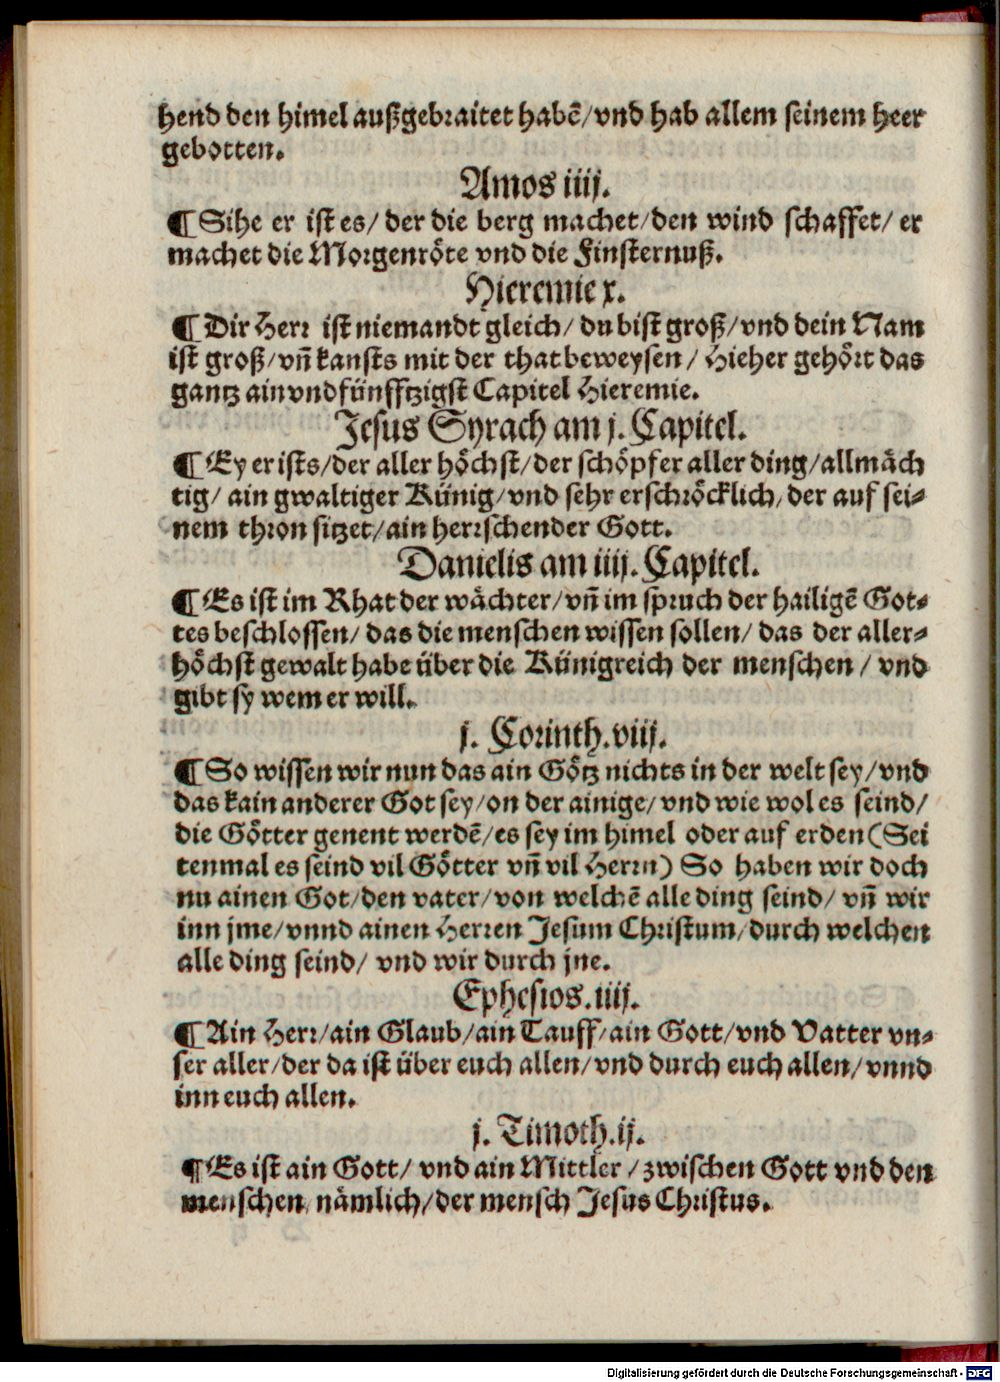 hend den himel außgebraitet habē/vnd hab allem seinem heer
gebotten.
Amos iiij.
¶ Sihe er ist es/ der die berg machet/den wind schaffet/ er
machet die Morgenröte vnd die Finsternuß.
Hieremie x.
¶ Dir Herr ist niemandt gleich/ du bist groß/vnd dein Nam
ist groß/vn̄ kansts mit der that beweysen/ Hieher gehört das
gantz ainvndfünfftzigst Capitel Hieremie.
Jesus Syrach am j. Capitel.
¶ Ey er ists/der aller höchst/der schöpfer aller ding/allmäch
tig/ ain gwaltiger Künig/vnd sehr erschröcklich/der auf sei-
nem thron sitzet/ain herrschender Gott.
Danielis am iiij. Capitel.
¶ Es ist im Rhat der wächter/vn̄ im spruch der hailigē Got-
tes beschlossen/ das die menschen wissen sollen/ das der aller-
höchst gewalt habe über die Künigreich der menschen/ vnd
gibt sy wem er will.
j. Corinth. viij.
¶ So wissen wir nun das ain Götz nichts in der welt sey/vnd
das kain anderer Got sey/on der ainige/vnd wie wol es seind/
die Götter genent werdē/es sey im himel oder auf erden (Sei
tenmal es seind vil Götter vn̄ vil Herrn) So haben wir doch
nu ainen Got/den vater/von welchē alle ding seind/ vn̄ wir
inn jme/vnnd ainen Herren Jesum Christum/durch welchen
alle ding seind/ vnd wir durch jne.
Ephesios. iiij.
¶ Ain Herr/ain Glaub/ain Tauff/ain Gott/vnd Vatter vn-
ser aller/der da ist über euch allen/vnd durch euch allen/vnnd
inn euch allen.
j. Timoth. ij.
¶ Es ist ain Gott/ vnd ain Mittler/zwischen Gott vnd den
menschen nämlich/der mensch Jesus Christus.
Digitalisierung gefördert durch die Deutsche Forschungsgemeinschaft - DFG